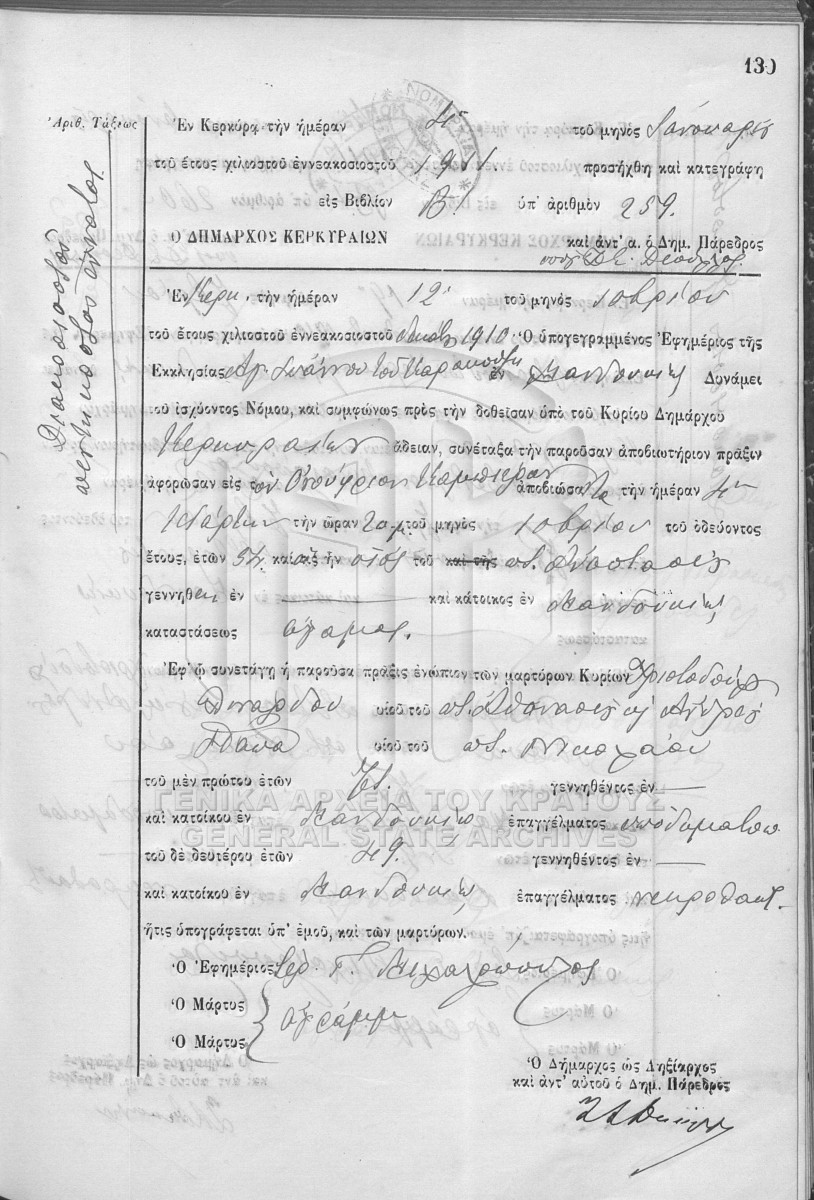 130
Ἀριθ. Τάξεως
Διακοσιοστὸν πεντηκοστὸν ἔννατον
Ἐν Κερκύρᾳ τὴν ἡμέραν τοῦ μηνὸς Ἰανουαρίου
τοῦ ἔτους χιλιοστοῦ ἐννεακοσιοστοῦ 1911 προσήχθη καὶ κατεγράφη
εἰς Βιβλίον Β! ὑπ' ἀριθμὸν 259.
Ο ΔΗΜΑΡΧΟΣ ΚΕΡΚΥΡΑΙΩΝ καὶ ἀντ' α. ὁ Δημ. Πάρεδρος
Ἐν Κερκ. τὴν ἡμέραν 12 τοῦ μηνὸς 10βρίου
τοῦ ἔτους χιλιοστοῦ ἐννεακοσιοστοῦ δεκάτου 1910 Ὁ ὑπογεγραμμένος Ἐφημέριος τῆς
Ἐκκλησίας Ἁγ. Ἰωάννου τοῦ ἐν Μανδουκίῳ Δυνάμει
τοῦ ἰσχύοντος Νόμου, καὶ συμφώνως πρὸς τὴν δοθεῖσαν ὑπὸ τοῦ Κυρίου Δημάρχου
Κερκυραίων ἄδειαν, συνέταξα τὴν παροῦσαν ἀποβιωτήριον πρᾶξιν
ἀφορῶσαν εἰς τὸν Ὀνούφριον ἀποβιώσαντα τὴν ἡμέραν
τὴν ὥραν τοῦ μηνὸς 10βρίου τοῦ ὁδεύοντος
ἔτους, ἐτῶν 54 καὶ ὅστις ἦν υἱὸς τοῦ καὶ τῆς ποτ. Ἀναστασίου
γεννηθεὶς ἐν — καὶ κάτοικος ἐν Μανδουκίῳ
καταστάσεως ἄγαμος.
Ἐφ' ᾧ συνετάγη ἡ παροῦσα πρᾶξις ἐνώπιον τῶν μαρτύρων Κυρίων Χριστοδούλου
υἱοῦ τοῦ ποτ. Ἀθανασίου κ Ἀνδρέου
Παπᾶ υἱοῦ τοῦ ποτ. Νικολάου
τοῦ μὲν πρώτου ἐτῶν γεννηθέντος ἐν —
ΓΕΝΙΚΑ ΑΡΧΕΙΑ ΤΟΥ ΚΡΑΤΟΥΣ
καὶ κατοίκου ἐν Μανδουκίῳ ἐπαγγέλματος ὑποδηματοπ
GENERAL STATE ARCHIVES
τοῦ δὲ δευτέρου ἐτῶν 49. γεννηθέντος ἐν —
καὶ κατοίκου ἐν Μανδουκίῳ ἐπαγγέλματος νεκροθάπτ.
ἥτις ὑπογράφεται ὑπ' ἐμοῦ, καὶ τῶν μαρτύρων.
Ὁ Ἐφημέριος
Ὁ Μάρτυς ἀγράμμ
Ὁ Μάρτυς
Ὁ Δήμαρχος ὡς Ληξίαρχος
καὶ ἀντ' αὐτοῦ ὁ Δημ. Πάρεδρος